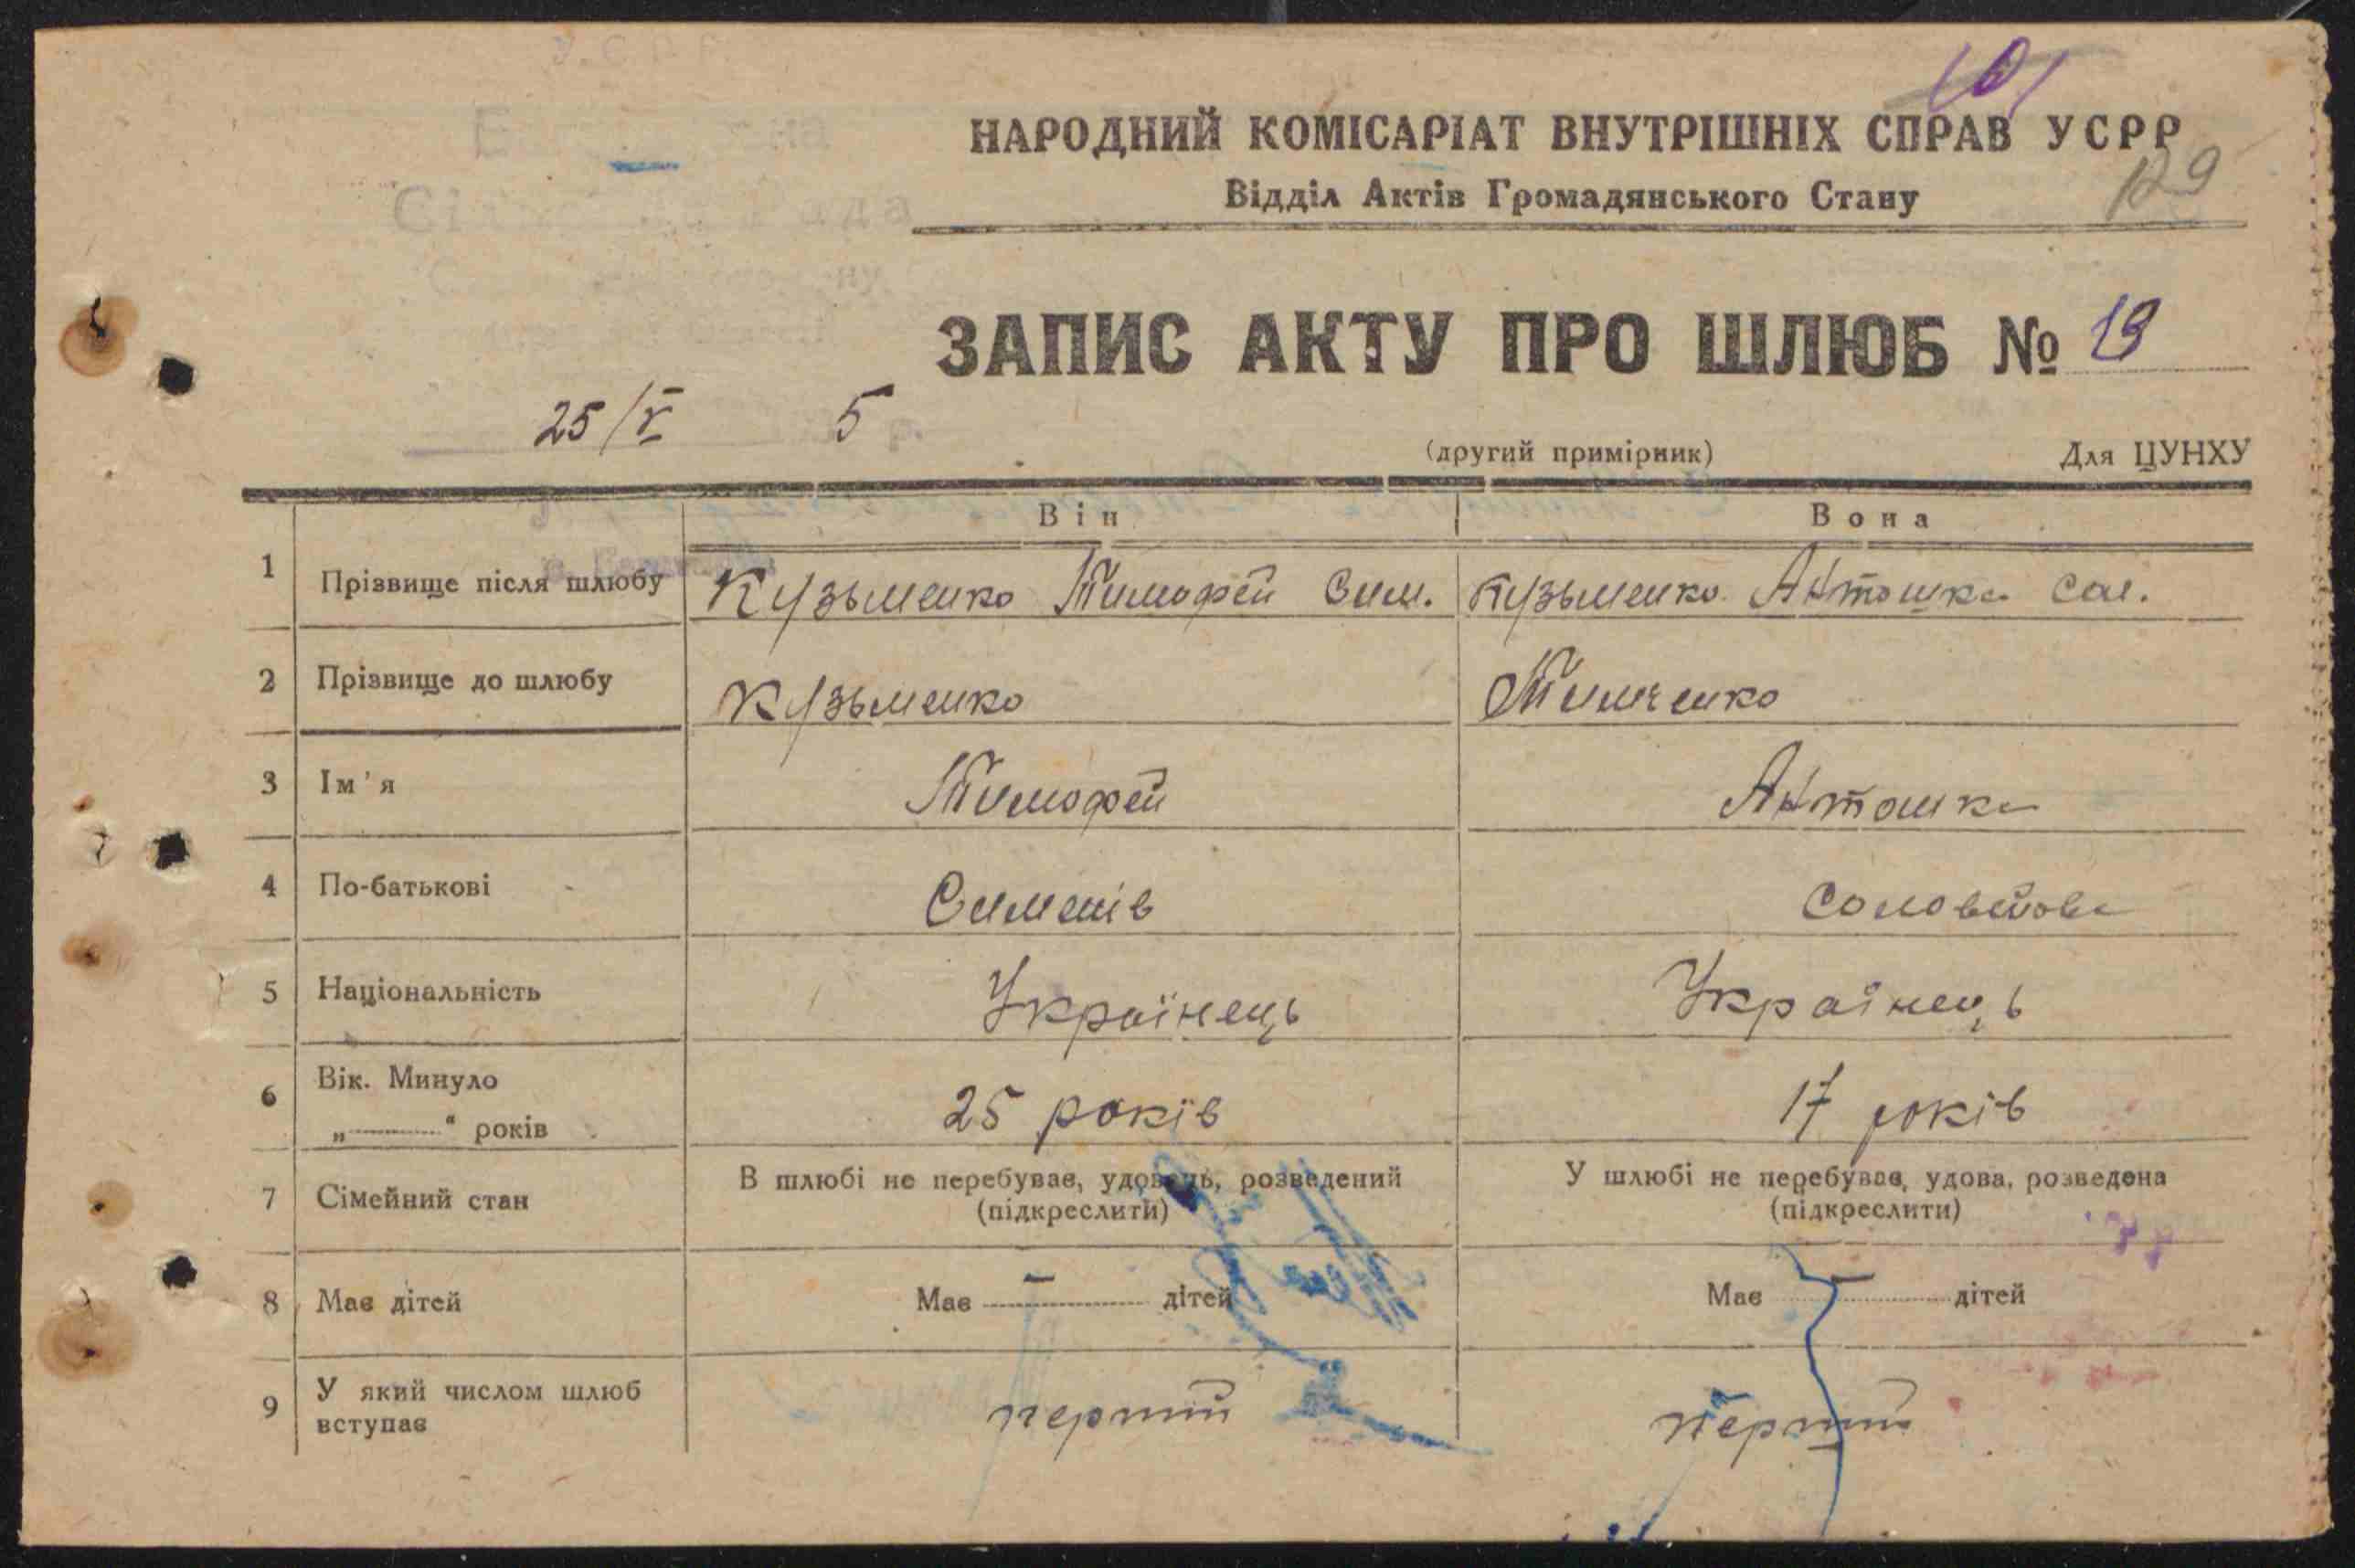 101
НАРОДНИЙ КОМІСАРІАТ ВНУТРІШНІХ СПРАВ УСРР
129
Відділ Актів Громадянського Стану
ЗАПИС АКТУ ПРО ШЛЮБ № 19
25/V 5 р.
(другий примірник) Для ЦУНХУ
Він Вона
1 Прізвище після шлюбу Кузьменко Тимофей Сим. Кузьменко Антошка Сол.
2 Прізвище до шлюбу Кузьменко Тимченко
3 Ім'я Тимофей Антошка
4 По-батькові Сименів Соловейова
5 Національність Українець Українець
6 Вік. Минуло
„ “ років 25 років 17 років
7 Сімейний стан В шлюбі не перебуває, удовець, розведений У шлюбі не перебуває, удова, розведена
(підкреслити) (підкреслити)
8 Має дітей Має — дітей Має — дітей
9 У який числом шлюб
вступає перший перший